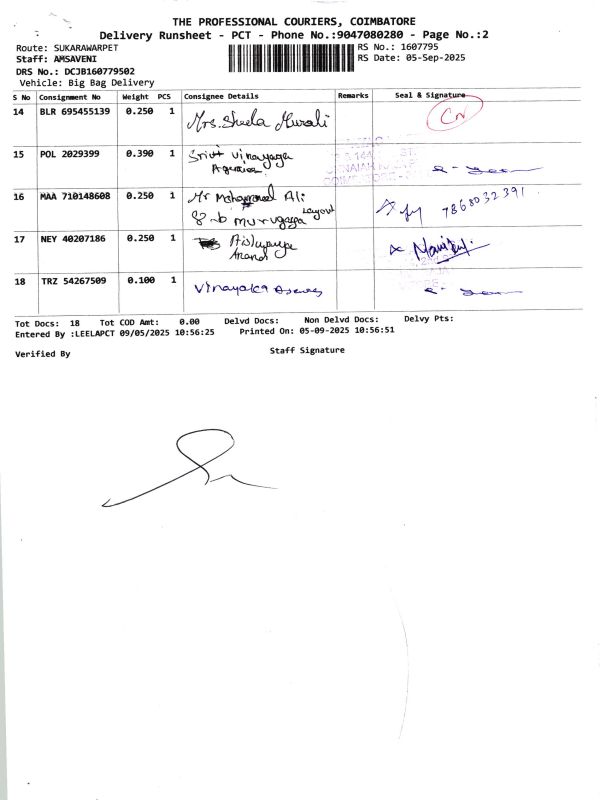 THE PROFESSIONAL COURIERS, COIMBATORE
Delivery Runsheet - PCT - Phone No.:9047080280 - Page No.:2
Route: SUKARAWARPET
RS No.: 1607795
Staff: AMSAVENI
RS Date: 05-Sep-2025
DRS No.: DCJB160779502
Vehicle: Big Bag Delivery
S No Consignment No Weight PCS Consignee Details Remarks Seal & Signature
14 BLR 695455139 0.250 1 Mrs. Sheela Murali CN
15 POL 2029399 0.390 1 Sri Vinayaga
Agencies
16 MAA 710148608 0.250 1 Mr Mohammed Ali 7868032391
8-b murugaya Layout
17 NEY 40207186 0.250 1
Anand
18 TRZ 54267509 0.100 1 Vinayaka
Tot Docs: 18 Tot COD Amt: 0.00 Delvd Docs: Non Delvd Docs: Delvy Pts:
Entered By :LEELAPCT 09/05/2025 10:56:25 Printed On: 05-09-2025 10:56:51
Verified By Staff Signature